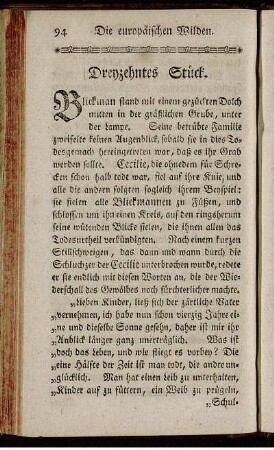 94 Die europäischen Wilden.
Dreyzehntes Stück.
Blickman stand mit einem gezückten Dolch
mitten in der gräßlichen Grube, unter
der Lampe. Seine betrübte Familie
zweifelte keinen Augenblick, sobald sie in dies To-
desgemach hereingetreten war, daß es ihr Grab
werden sollte. Cecilie, die ohnedem für Schre-
cken schon halb todt war, fiel auf ihre Knie, und
alle die andern folgten sogleich ihrem Beyspiel:
sie fielen alle Blickmannen zu Füßen, und
schlossen um ihn einen Kreis, auf den ringsherum
seine wütenden Blicke fielen, die ihnen allen das
Todesurtheil verkündigten. Nach einem kurzen
Stillschweigen, das dann und wann durch die
Schluchzer der Cecilie unterbrochen wurde, redete
er sie endlich mit diesen Worten an, die der Wie-
derschall des Gewölbes noch fürchterlicher machte.
„lieben Kinder, ließ sich der zärtliche Vater
„vernehmen, ich habe nun schon vierzig Jahre ei-
„ne und dieselbe Sonne gesehn, daher ist mir ihr
„Anblick länger ganz unerträglich. Was ist
„doch das Leben, und wie fliegt es vorbey? Die
„eine Hälfte der Zeit ist man todt, die andre un-
„glücklich. Man hat einen Leib zu unterhalten,
„Kinder auf zu füttern, ein Weib zu prügeln,
„Schul-